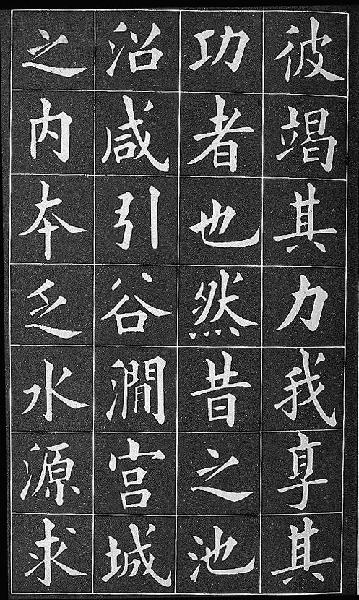 彼竭其力我享其
功者也然昔之池
沼咸引谷澗宮城
之内本乏水源求